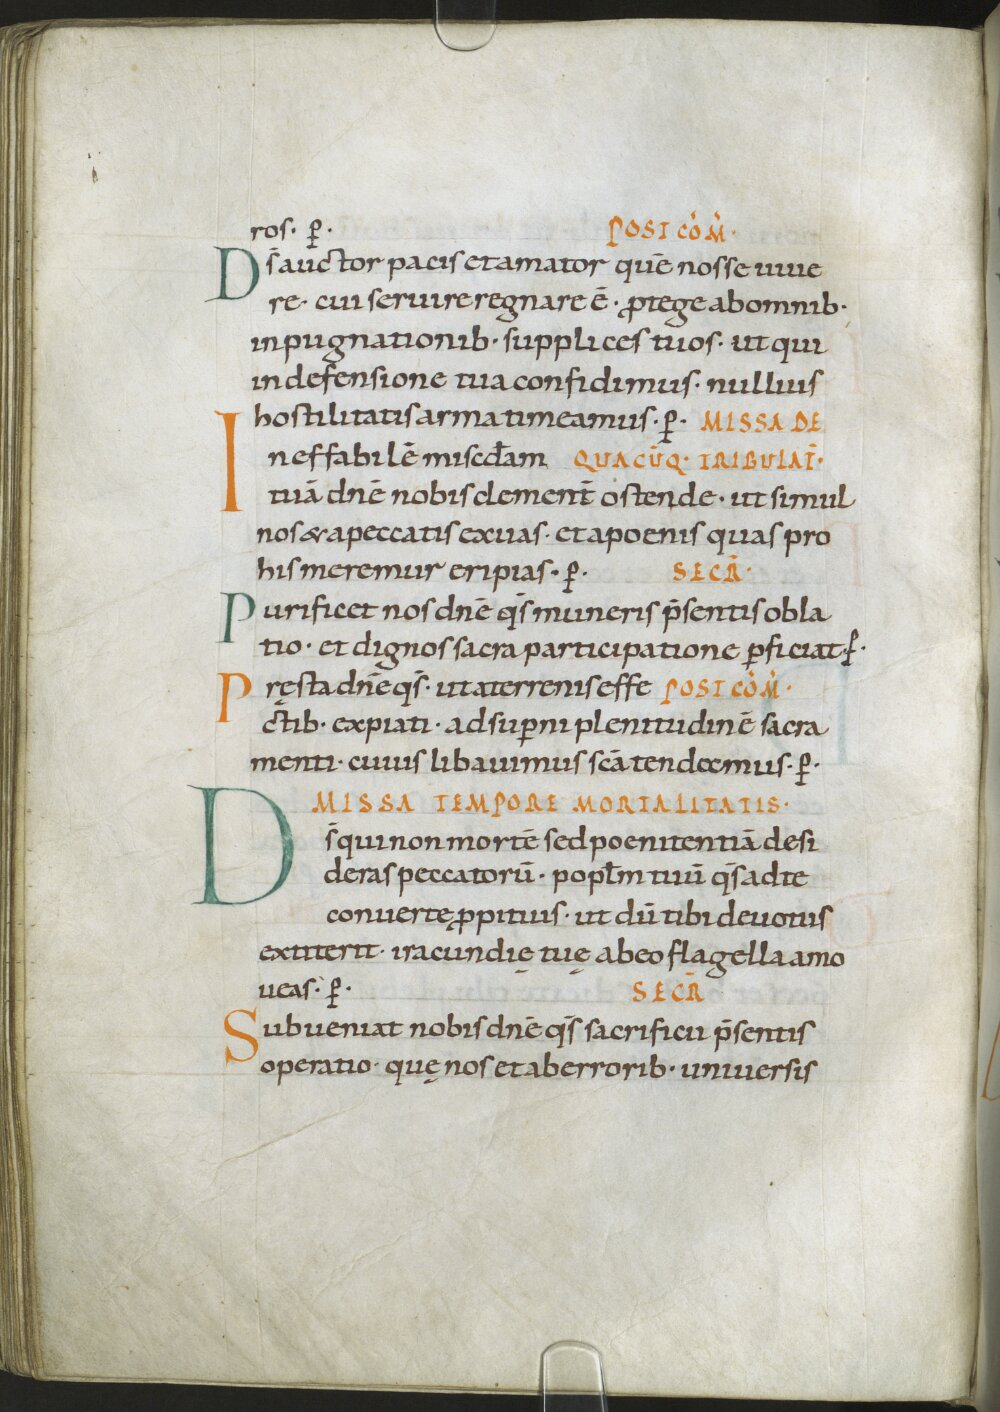 ros· ꝑ· POST CŌM·
Ds̄ auctor pacis et amator quē nosse uiue
re· cui seruire regnare ē· ꝓtege ab omnib·
inpugnationib· supplices tuos· ut qui
in defensione tua confidimus· nullius
hostilitatis arma timeamus· ꝑ· MISSA DE
Ineffabilē miscđam QUACŪQ· TRIBULAT̄·
tuā dnē nobis clement̄ ostende· ut simul
nos & a peccatis exuas· et a poenis quas pro
his meremur eripias· ꝑ· SECR̄·
Purificet nos dnē qs̄ muneris p̄sentis obla
tio· et dignos sacra participatione ꝑficiat· ꝑ·
Pręsta dnē qs̄· ut a terrenis effe POST CŌM·
ctib· expiati· ad suꝑni plenitudinē sacra
menti· cuius libauimus scā tendeemus· ꝑ·
MISSA TEMPORE MORTALITATIS·
Ds̄ qui non mortē sed poenitentiā desi
deras peccatorū· popl̄m tuū qs̄ ad te
conuerte ꝓpitius· ut dū tibi deuotus
extiterit· iracundię tuę ab eo flagella amo
ueas· ꝑ· SECR̄
Subueniat nobis dnē qs̄ sacrificii p̄sentis
operatio· quę nos et ab errorib· uniuersis